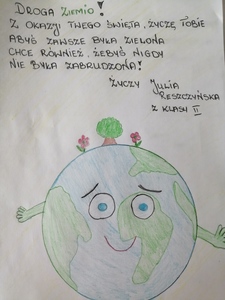 DROGA ZIEMIO!
Z OKAZJI TWEGO ŚWIĘTA, ŻYCZĘ TOBIE
ABYŚ ZAWSZE BYŁA ZIELONA
CHCĘ RÓWNIEŻ, ŻEBYŚ NIGDY
NIE BYŁA ZABRUDZONA!
ŻYCZY JULIA
RESZCZYŃSKA
Z KLASY II